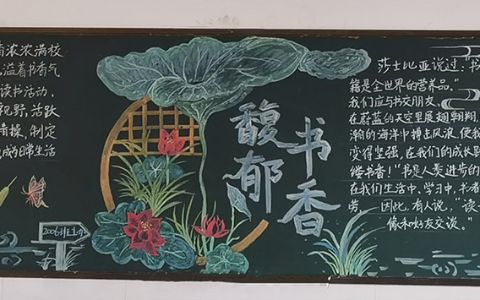 书香浓浓满校
溢着书香气
读书活动,
视野,活跃
情操,制定
成为日常生活
馥郁
书香
莎士比亚说过:“书
籍是全世界的营养品。”
我们应与书交朋友,
在蔚蓝的天空里展翅翱翔,
瀚的海洋中搏击风浪,使我
变得坚强,在我们的成长
缕书香!“书是人类进步的
在我们生活中,学习中,书
劳。因此,有人说,“读一
像和好友交谈。”